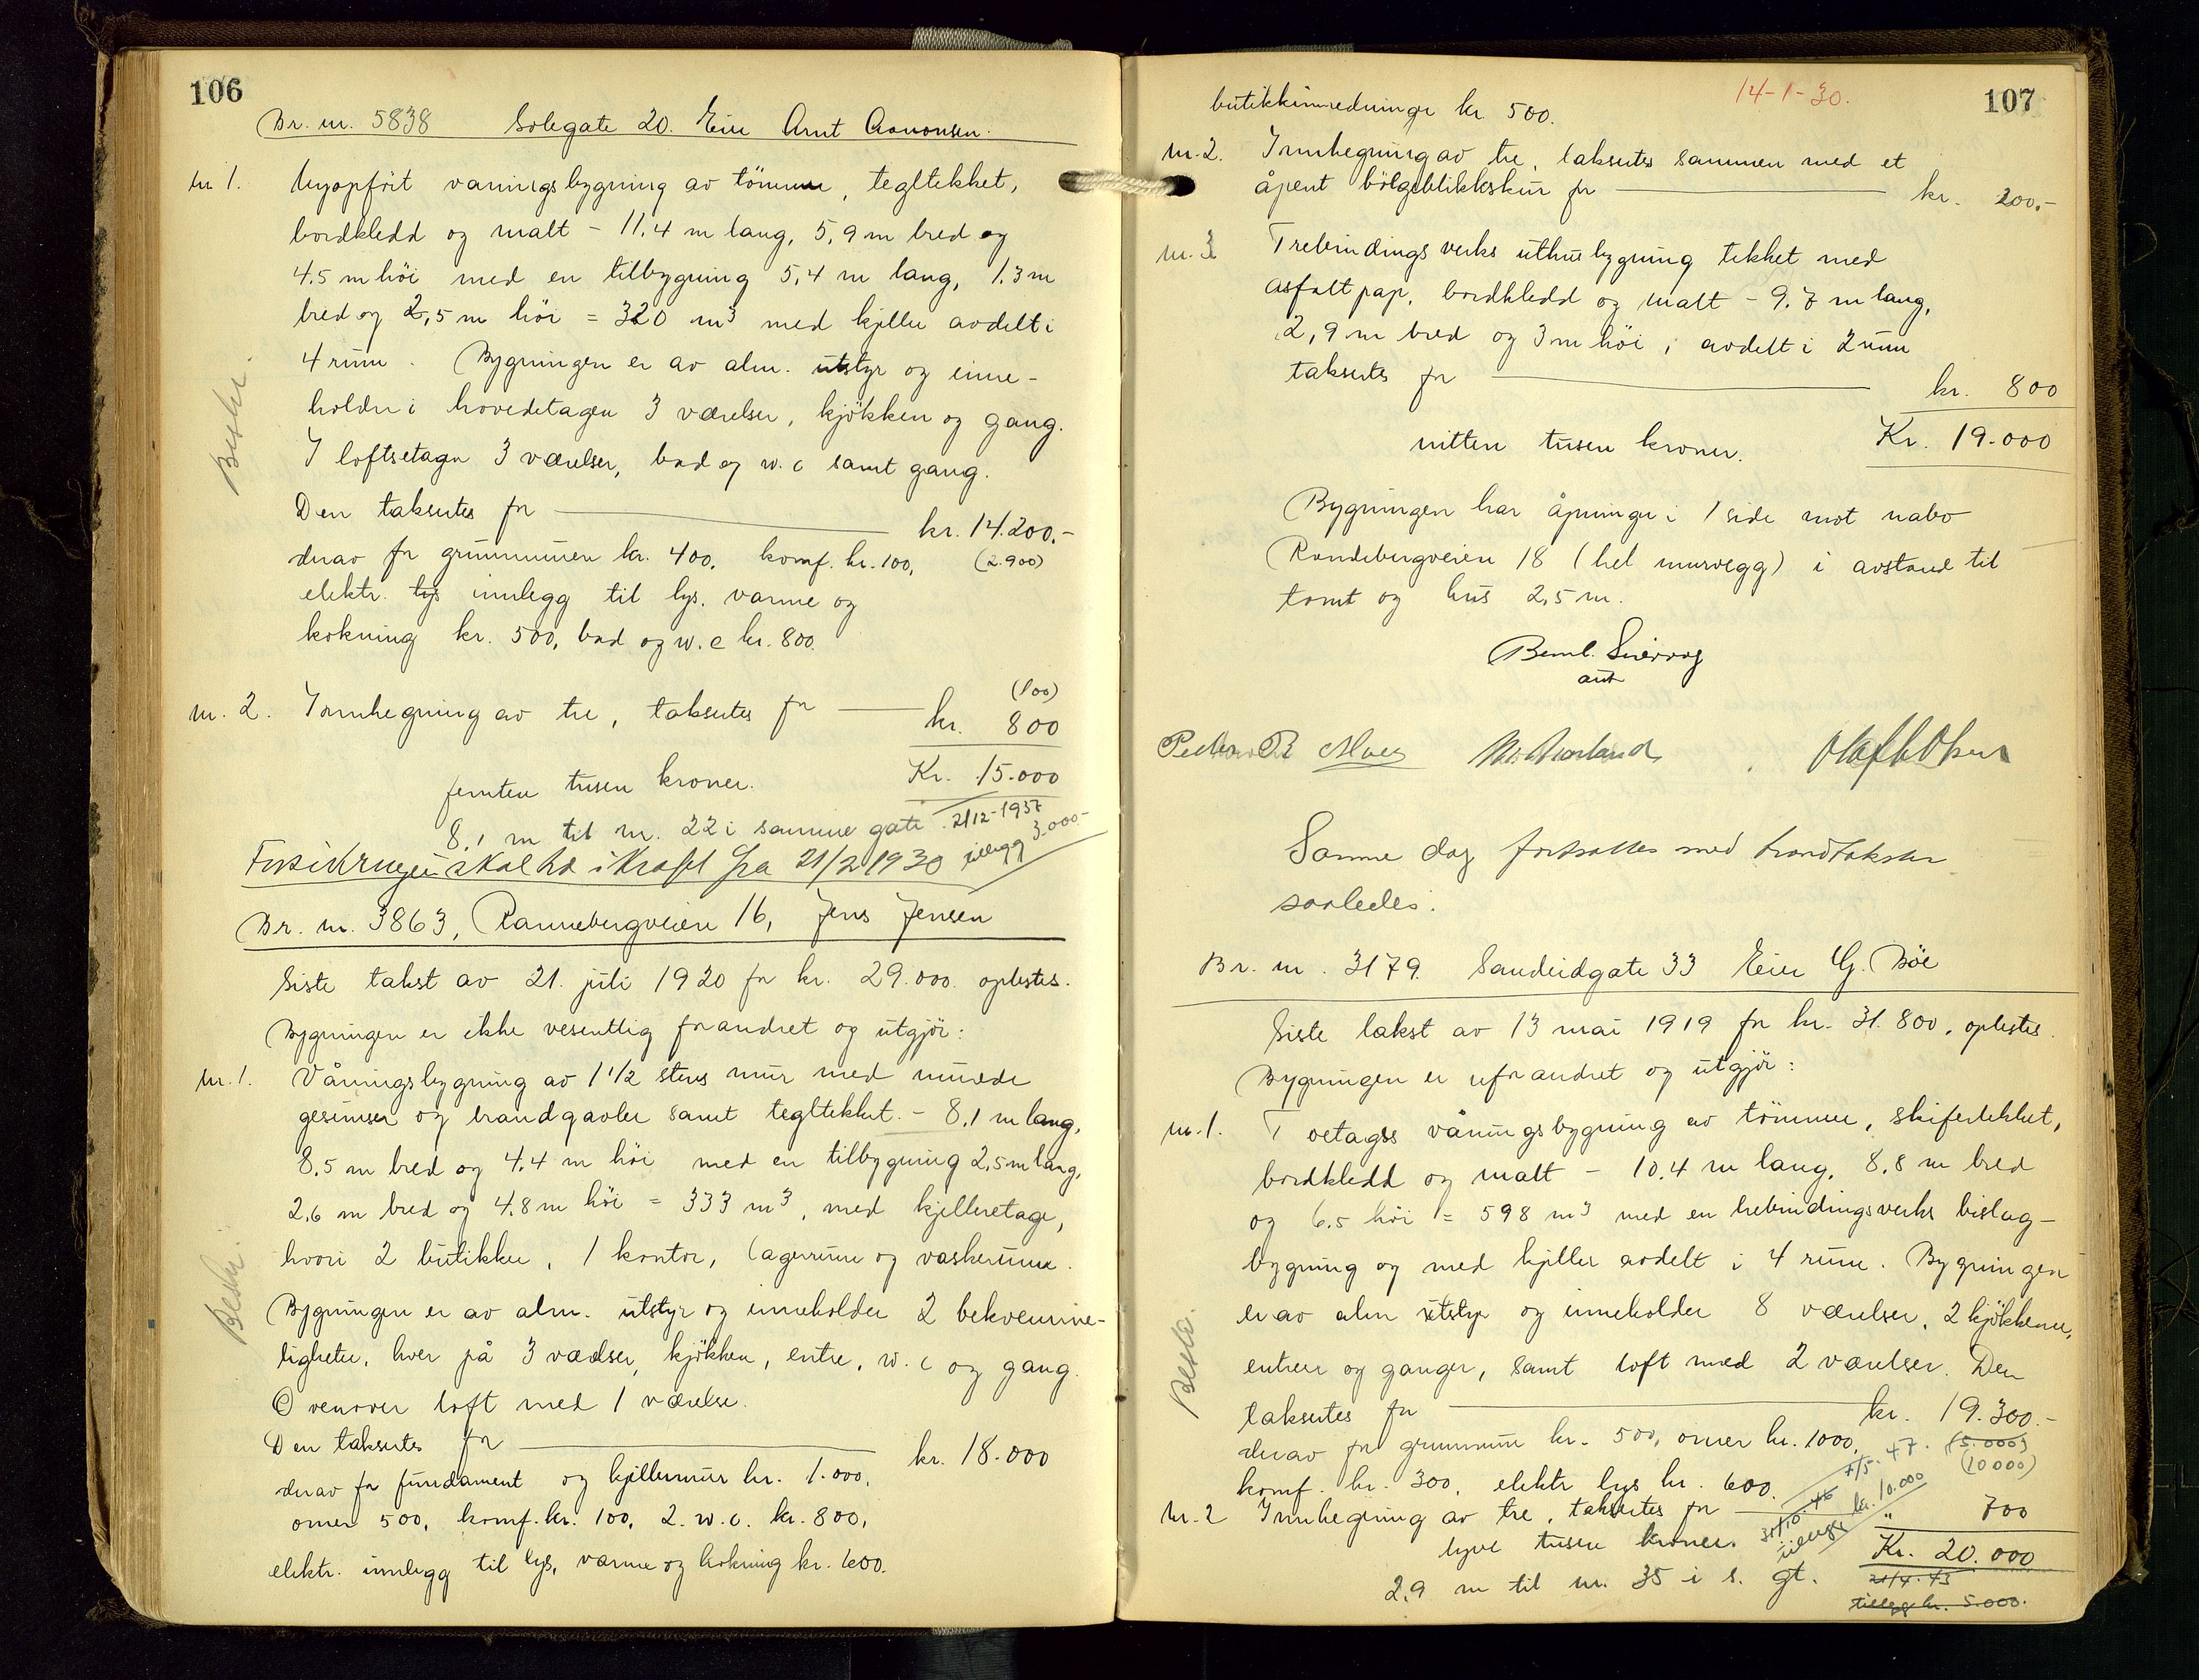 106
Br. nr. 5838 Solegate 20. Eier Arnt Aanonsen.
nr 1. Nyopført vaningsbygning av tømmer, tegltekket,
bordkledd og malt - 11,4 m lang, 5,9 m bred og
4.5 m høi med en tilbygning 5,4 m lang, 1.3 m
bred og 2,5 m høi = 320 m³ med kjeller avdelt i
4 rum. Bygningen er av alm. utstyr og inne-
holder i hovedetagen 3 værelser, kjøkken og gang.
I loftsetagen 3 værelser, bad og w.c samt gang.
Den takseres for kr. 14.200.-
derav for grunnmuren kr. 400, komf. kr. 100, (2.900)
elektr. lys innlegg til lys, varme og
kokning kr. 500, bad og w.c kr. 800.
Beskr.
(100)
nr. 2. Innhegning av tre, takseres for kr. 800
femten tusen kroner. Kr. 15.000
8,1 m til nr. 22 i samme gate. 21/12-1937
tillegg 3.000.-
Forsikringen skal ha i kraft fra 21/2 1930
Br. nr. 3863, Rannebergveien 16, Jens Jensen
Siste takst av 21. juli 1920 for kr. 29.000. oplestes.
Bygningen er ikke vesentlig forandret og utgjør:
nr. 1. Våningsbygning av 1 1/2 stens mur med murede
gesimser og brandgavler samt tegltekket. - 8,1 m lang,
8.5 m bred og 4.4 m høi med en tilbygning 2,5 m lang,
2,6 m bred og 4.8 m høi = 333 m³, med kjelleretage,
hvori 2 butikker, 1 kontor, lagerrum og vaskerum.
Bygningen er av alm. utstyr og inneholder 2 bekvemme-
ligheter, hver på 3 værelser, kjøkken, entre, w.c og gang.
Ovenover loft med 1 værelse.
Beskr.
Den takseres for kr. 18.000
derav for fundament og kjellermur kr. 1.000,
ovner 500, komf. kr. 100, 2 w.c. kr. 800,
elektr. innlegg til lys, varme og kokning kr. 600.
107
14-1-30.
butikkinnredninger kr 500.
nr. 2. Innhegning av tre, takseres sammen med et
åpent bølgeblikkskur for kr. 200.-
nr. 3 Trebindingsverks uthusbygning tekket med
asfaltpap, bordkledd og malt - 9.7 m lang,
2,9 m bred og 3 m høi, avdelt i 2 rum
takseres for kr. 800
nitten tusen kroner. Kr. 19.000
Bygningen har åpninger i 1 side mot nabo
Randebergveien 18 (hel murvegg) i avstand til
tomt og hus 2,5 m.
Samme dag fortsattes med brandtakster
saaledes:
Br. nr. 3179. Sandeidgate 33 Eier G. Bøe
Siste takst av 13 mai 1919 for kr. 31.800, oplestes.
Bygningen er uforandret og utgjør:
nr. 1. Toetagss våningsbygning av tømmer, skifertekket,
bordkledd og malt - 10.4 m lang, 8,8 m bred
og 6.5 høi = 598 m³ med en trebindingsverks bislag-
bygning og med kjeller avdelt i 4 rum. Bygningen
er av alm utstyr og inneholder 8 værelser, 2 kjøkkener,
entreer og ganger, samt loft med 2 værelser. Den
Beskr.
takseres for kr. 19.300.-
derav for grunnmur kr. 500, ovner kr. 1000, (5.000)
komf. kr. 300, elektr lys kr. 600. (10000)
7/5. 47.
31/10.46
tillegg kr. 10.000
nr. 2 Innhegning av tre, takseres for " 700
tyve tusen kroner. Kr. 20.000
2,9 m til nr. 35 i s. gt. 21/4.43
tillegg kr. 5.000.